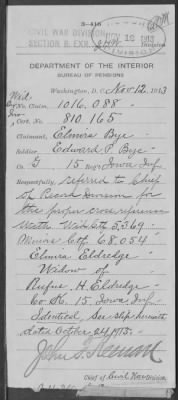 3-416
CIVIL WAR DIVISION
SECTION B. EXR.
Division
DEPARTMENT OF THE INTERIOR
BUREAU OF PENSIONS
Washington, D. C. Nov 12, 1913
Wid
No. Claim, 1016,088
Cert. No. 810,165
Claimant, Elmira Bye
Soldier, Edward P. Bye
Co. G 15 Reg't Iowa Inf
Respectfully referred to Chief
of Record Division for
the proper cross reference
with Wid Ctf 5,369
Minors Ctf. 68,054
Elmira Eldredge
Widow of
Rufus H. Eldredge
15, Iowa Inf
Identical, See slip herewith
dated October 24, 1913.
John S.
Chief of Civil War Division